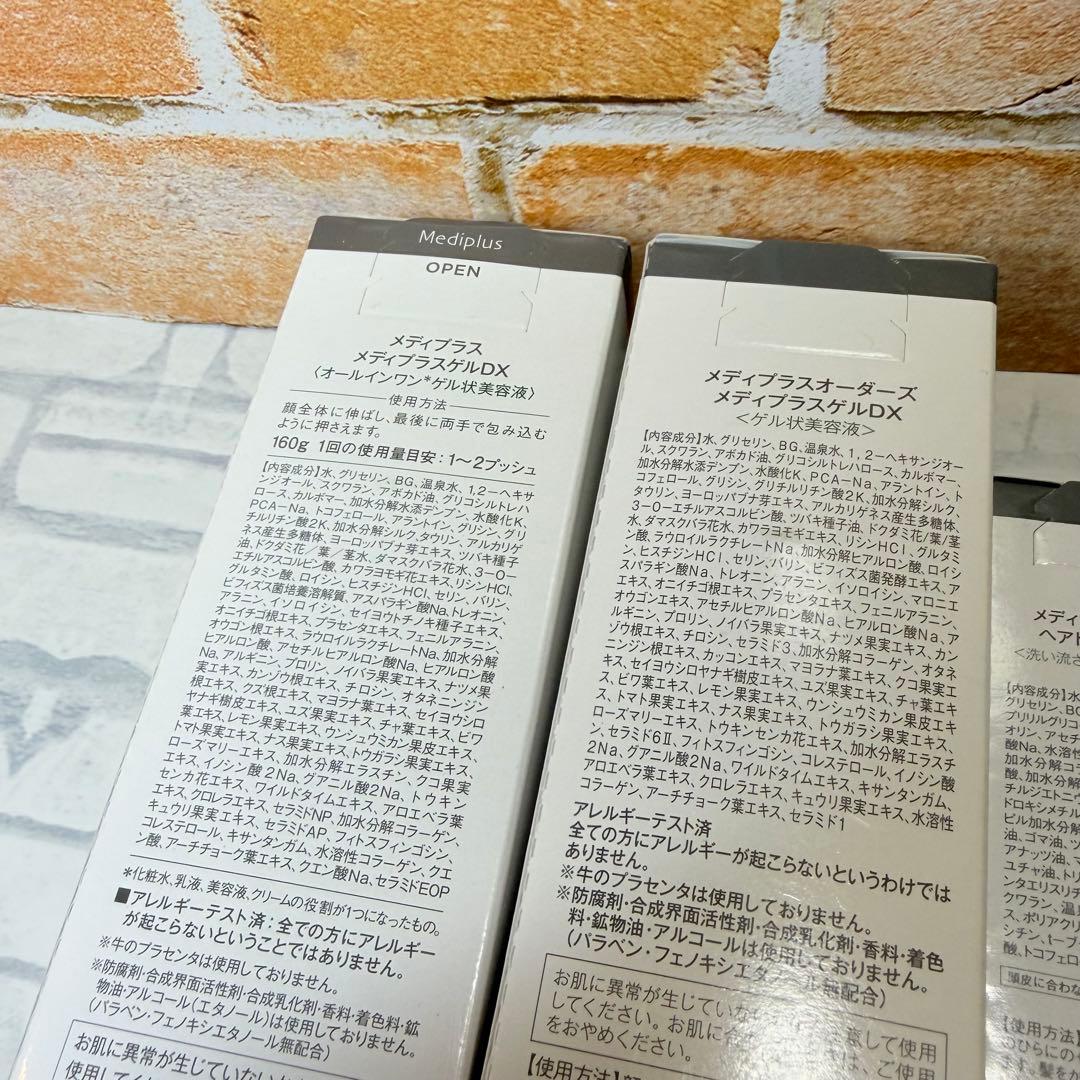 Mediplus
OPEN
メディプラス
メディプラスゲルDX
〈オールインワン*ゲル状美容液〉
使用方法
顔全体に伸ばし、最後に両手で包み込む
ように押さえます。
160g 1回の使用量目安:1〜2プッシュ
【内容成分】水、グリセリン、BG、温泉水、1,2-ヘキサ
ンジオール、スクワラン、アボカド油、グリコシルトレハ
ロース、カルボマー、加水分解水添デンプン、水酸化K、
PCA-Na、トコフェロール、アラントイン、グリシン、グリ
チルリチン酸2K、加水分解シルク、タウリン、アルカリゲ
ネス産生多糖体、ヨーロッパブナ芽エキス、ツバキ種子
油、ドクダミ花/葉/茎水、ダマスクバラ花水、3-O-
エチルアスコルビン酸、カワラヨモギ花エキス、リシンHCl、
グルタミン酸、ロイシン、ヒスチジンHCl、セリン、バリン、
ビフィズス菌培養溶解質、アスパラギン酸Na、トレオニン、
アラニン、イソロイシン、セイヨウトチノキ種子エキス、
オニイチゴ根エキス、プラセンタエキス、フェニルアラニン、
オウゴン根エキス、ラウロイルラクチレートNa、加水分解
ヒアルロン酸、アセチルヒアルロン酸Na、ヒアルロン酸
Na、アルギニン、プロリン、ノイバラ果実エキス、ナツメ果
実エキス、カンゾウ根エキス、チロシン、オタネニンジン
根エキス、クズ根エキス、マヨラナ葉エキス、セイヨウシロ
ヤナギ樹皮エキス、ユズ果実エキス、チャ葉エキス、ビワ
葉エキス、レモン果実エキス、ウンシュウミカン果皮エキス、
トマト果実エキス、ナス果実エキス、トウガラシ果実エキス、
ローズマリーエキス、加水分解エラスチン、クコ果実エ
キス、イノシン酸2Na、グアニル酸2Na、トウキン
センカ花エキス、ワイルドタイムエキス、アロエベラ葉
エキス、クロレラエキス、セラミドNP、加水分解コラーゲン、
キュウリ果実エキス、セラミドAP、フィトスフィンゴシン、
コレステロール、キサンタンガム、水溶性コラーゲン、クエ
ン酸、アーチチョーク葉エキス、クエン酸Na、セラミドEOP
*化粧水、乳液、美容液、クリームの役割が1つになったもの。
■アレルギーテスト済:全ての方にアレルギー
が起こらないということではありません。
※牛のプラセンタは使用しておりません。
※防腐剤・合成界面活性剤・合成乳化剤・香料・着色料・鉱
物油・アルコール(エタノール)は使用しておりません。
(パラベン・フェノキシエタノール無配合)
お肌に異常が生じていないか
使用してく
メディプラスオーダーズ
メディプラスゲルDX
<ゲル状美容液>
【内容成分】水、グリセリン、BG、温泉水、1,2-ヘキサンジオー
ル、スクワラン、アボカド油、グリコシルトレハロース、カルボマー、
加水分解水添デンプン、水酸化K、PCA-Na、アラントイン、ト
コフェロール、グリシン、グリチルリチン酸2K、加水分解シルク、
タウリン、ヨーロッパブナ芽エキス、アルカリゲネス産生多糖体、
3-O-エチルアスコルビン酸、ツバキ種子油、ドクダミ花/葉/茎
水、ダマスクバラ花水、カワラヨモギエキス、リシンHCl、グルタミン
酸、ラウロイルラクチレートNa、加水分解ヒアルロン酸、ロイシ
ン、ヒスチジンHCl、セリン、バリン、ビフィズス菌発酵エキス、ア
スパラギン酸Na、トレオニン、アラニン、イソロイシン、マロニエ
エキス、オニイチゴ根エキス、プラセンタエキス、フェニルアラニン、
オウゴンエキス、アセチルヒアルロン酸Na、ヒアルロン酸Na、ア
ルギニン、プロリン、ノイバラ果実エキス、ナツメ果実エキス、カン
ゾウ根エキス、チロシン、セラミド3、加水分解コラーゲン、オタネ
ニンジン根エキス、カッコンエキス、マヨラナ葉エキス、クコ果実エ
キス、セイヨウシロヤナギ樹皮エキス、ユズ果実エキス、チャ葉エキ
ス、ビワ葉エキス、レモン果実エキス、ウンシュウミカン果皮エキ
ス、トマト果実エキス、ナス果実エキス、トウガラシ果実エキス、
ローズマリーエキス、トウキンセンカ花エキス、加水分解エラスチ
ン、セラミド6Ⅱ、フィトスフィンゴシン、コレステロール、イノシン酸
2Na、グアニル酸2Na、ワイルドタイムエキス、キサンタンガム、
アロエベラ葉エキス、クロレラエキス、キュウリ果実エキス、水溶性
コラーゲン、アーチチョーク葉エキス、セラミド1
アレルギーテスト済
全ての方にアレルギーが起こらないというわけでは
ありません。
※牛のプラセンタは使用しておりません。
※防腐剤・合成界面活性剤・合成乳化剤・香料・着色
料・鉱物油・アルコールは使用しておりません。
(パラベン・フェノキシエタノール無配合)
お肌に異常が生じていな 意して使用
してください。お肌に合 は、ご使用
をおやめください。
【使用方法】
メディ
ヘア
<洗い流さ
【内容成分】水
グリセリン、BG
プリリルグリコ
オリン、アセチ
酸Na、水溶性
加水分解コ
酸、加水分解
チルジエトニウ
ドロキシメチル
ピル加水分解
油、ゴマ油、ツ
アナッツ油、マ
ユチャ油、トリ
ンタエリスリチ
クワラン、温
ス、ポリアクリ
シチン、t-ブ
酸、トコフェロ
頭皮に合わな
【使用方法】
ひらにの
す。髪をか